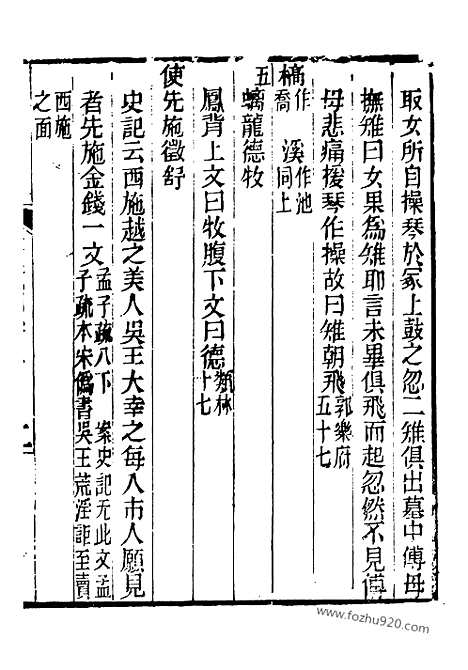 取女所自操琴於冢上鼓之忽二雉俱出墓中傅母
撫雉曰女果為雉耶言未畢俱飛而起忽然不見傅
母悲痛援琴作操故曰雉朝飛郭樂府五十七
槗作喬 溪作池同上
五
螭龍德牧
鳳背上文曰牧腹下文曰德類林十七
使先施徵舒
史記云西施越之美人吳王大幸之每入市人願見
者先施金錢一文孟子疏八下 案史記无此文孟子疏本宋僞書吳王荒淫詎至賣
西施之面
www.fozhu920.com